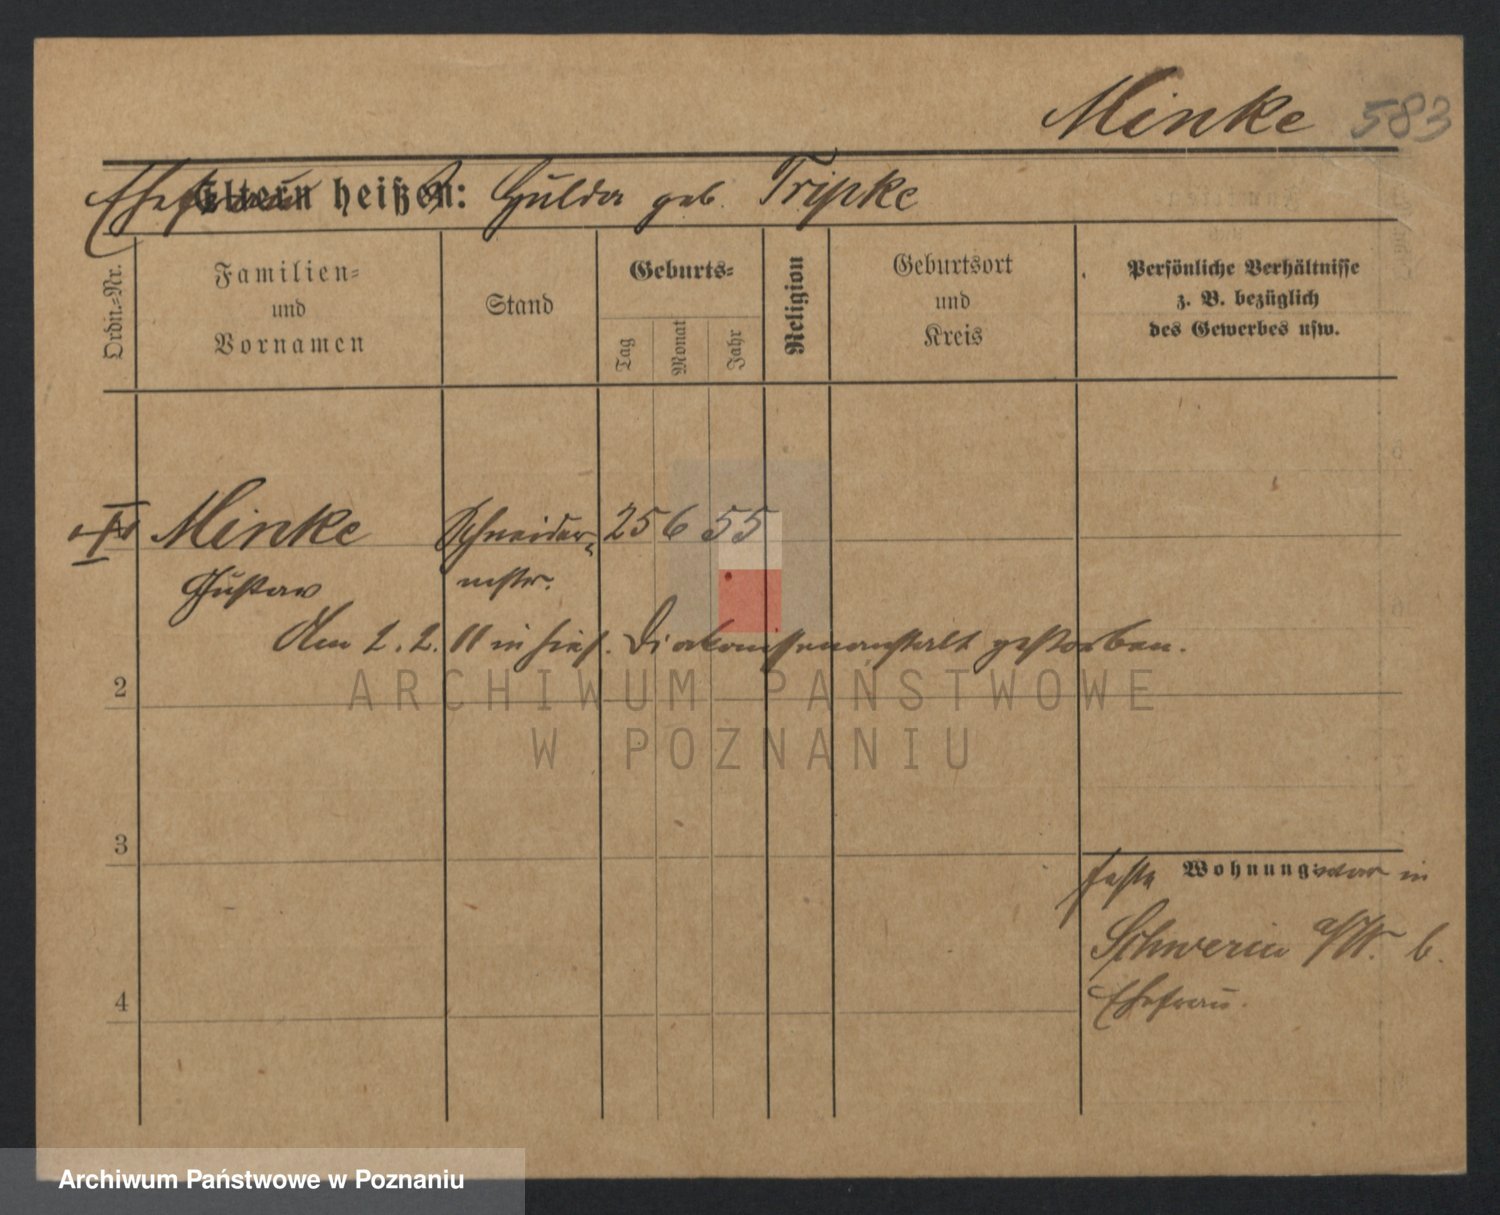 Minke 583
Eltern heißen:
Ehefrau Hulda geb. Tripke
Ordn.=Nr.
Familien=
und
Vornamen
Stand
Geburts=
Tag
Monat
Jahr
Religion
Geburtsort
und
Kreis
Persönliche Verhältnisse
z. B. bezüglich
des Gewerbes usw.
Minke Schneider- 25 6 55
Gustav mstr.
Am 2. 2. 11 in hies. Diakonissenanstalt gestorben.
ARCHIWUM PAŃSTWOWE
2
W POZNANIU
3
feste Wohnung war in
Schwerin a/W. b.
4
Ehefrau.
Archiwum Państwowe w Poznaniu